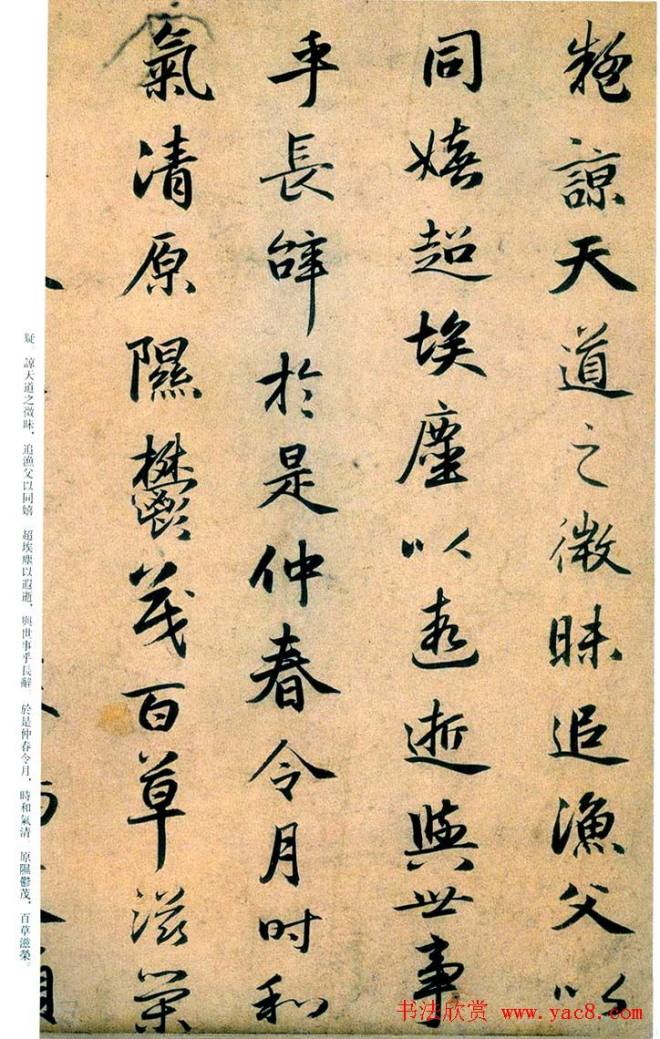 疑諒天道之微昧追漁父以
同嬉超埃塵以遐逝與世事
乎長辭於是仲春令月時和
氣清原隰鬱茂百草滋榮
疑。諒天道之微昧，追漁父以同嬉。超埃塵以遐逝，與世事乎長辭。於是仲春令月，時和氣清。原隰鬱茂，百草滋榮。
书法欣赏 www.yac8.com